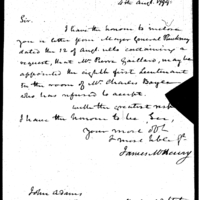 4th Augt. 1799.
Sir.
I have the honour to inclose
you a letter from Major General Pinckney
dated the 12 of and. ulto containing a
request, that Mr. Peron Gaillard, may be
appointed the eighth first Lieutenant
in the room of Mr. Charles Boyle
who has refused to accept.
With the greatest respect
I have the honour to be Sir,
Your most Obt.
& most hble St.
James McHenry
John Adams